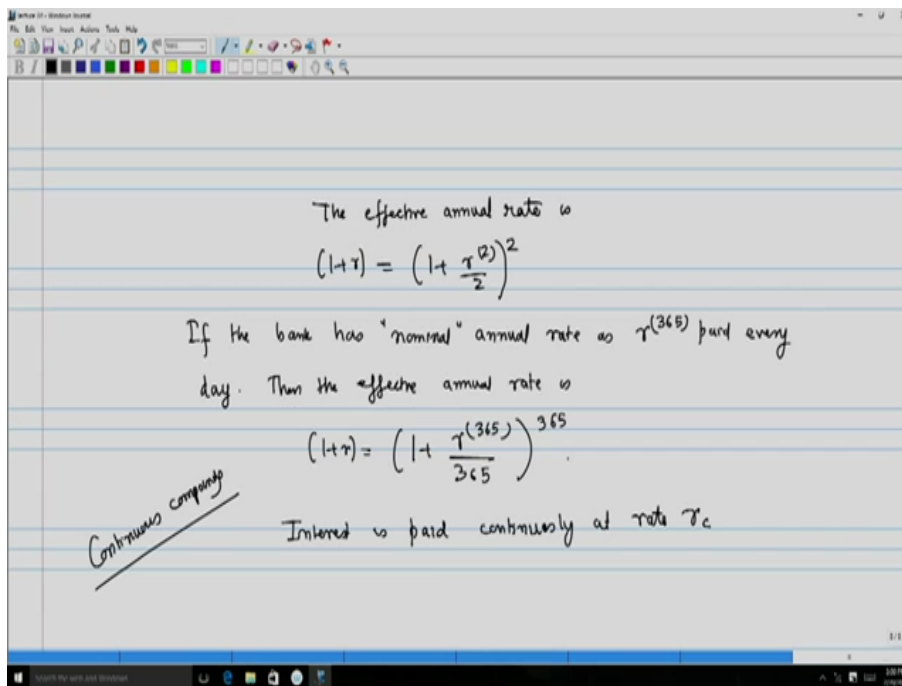 File Edit View Insert Actions Tools Help
B I
The effective annual rate is
(1+r) = (1+ r^(2)/2)^2
If the bank has "nominal" annual rate as r^(365) paid every
day. Then the effective annual rate is
(1+r) = (1+ r^(365)/365)^365.
Continuous compoundg
Interest is paid continuously at rate r_c
1/1
Search the web and Windows